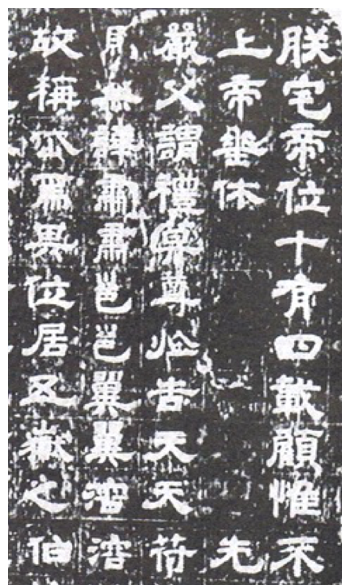 朕宅帝位十有四載顧惟不
上帝垂休　先
嚴父謂禮莫尊於告天天符
則無譁肅肅邕邕翼翼溶溶
故稱岱焉其位居五嶽之伯